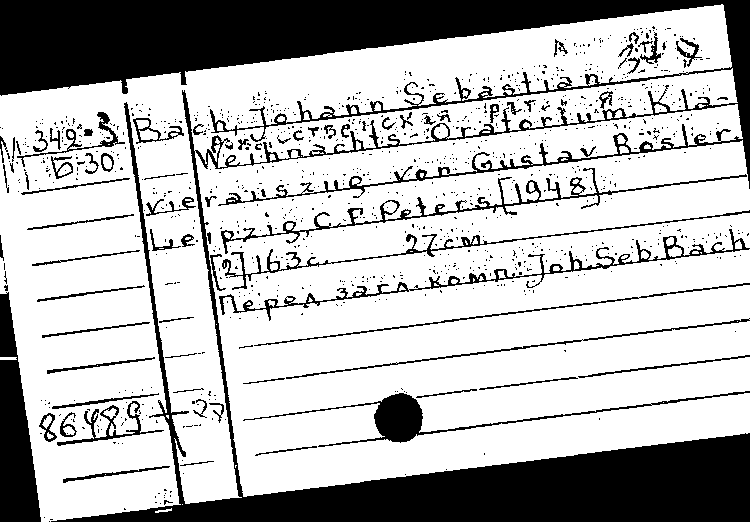 М 342-3
Б-30.
Bach, Johann Sebastian.
Рождественская оратория
Weihnachts-Oratorium. Kla-
vierauszug von Gustav Rösler.
Leipzig, C. F. Peters, [1948].
[2], 163 с. 27 см.
Перед загл. комп.: Joh. Seb. Bach
86489